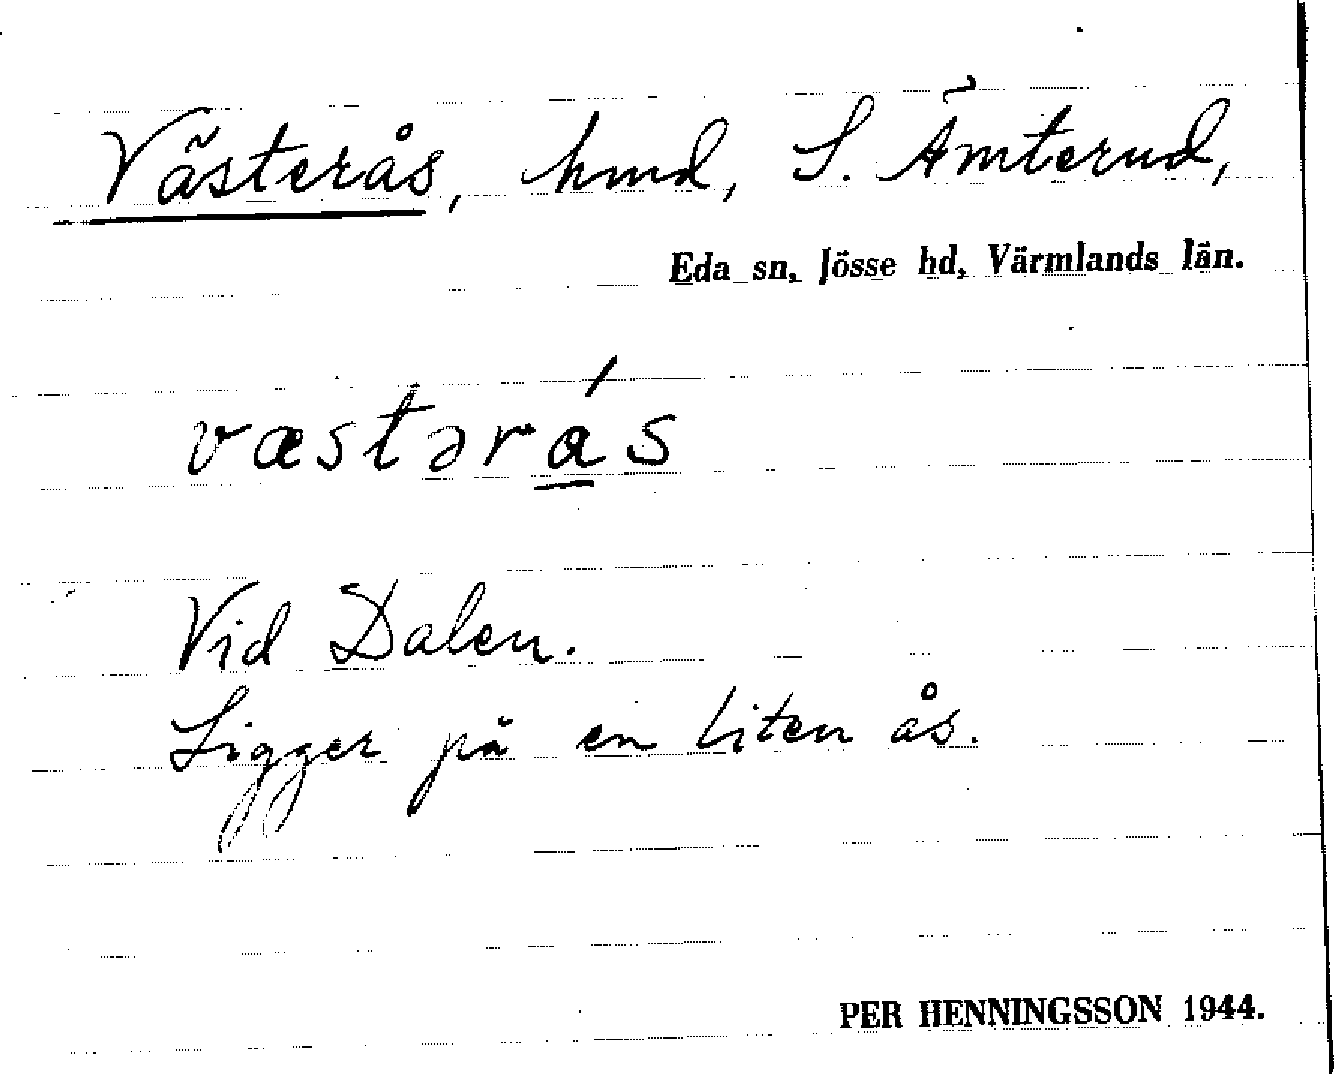 Västerås, hmd, S. Ämterud,
Eda sn, Jösse hd, Värmlands län.
væstərás
Vid Dalen.
Ligger på en liten ås.
PER HENNINGSSON 1944.